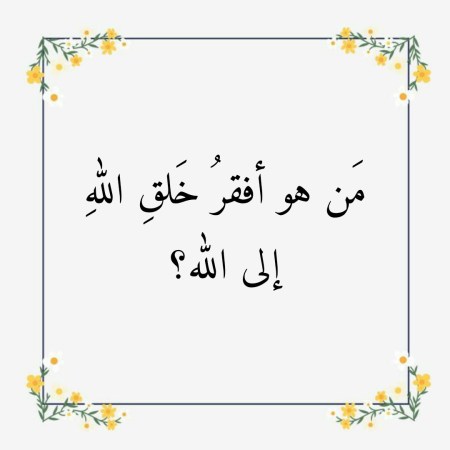 مَن هو أفقرُ خَلقِ اللهِ
إلى الله؟